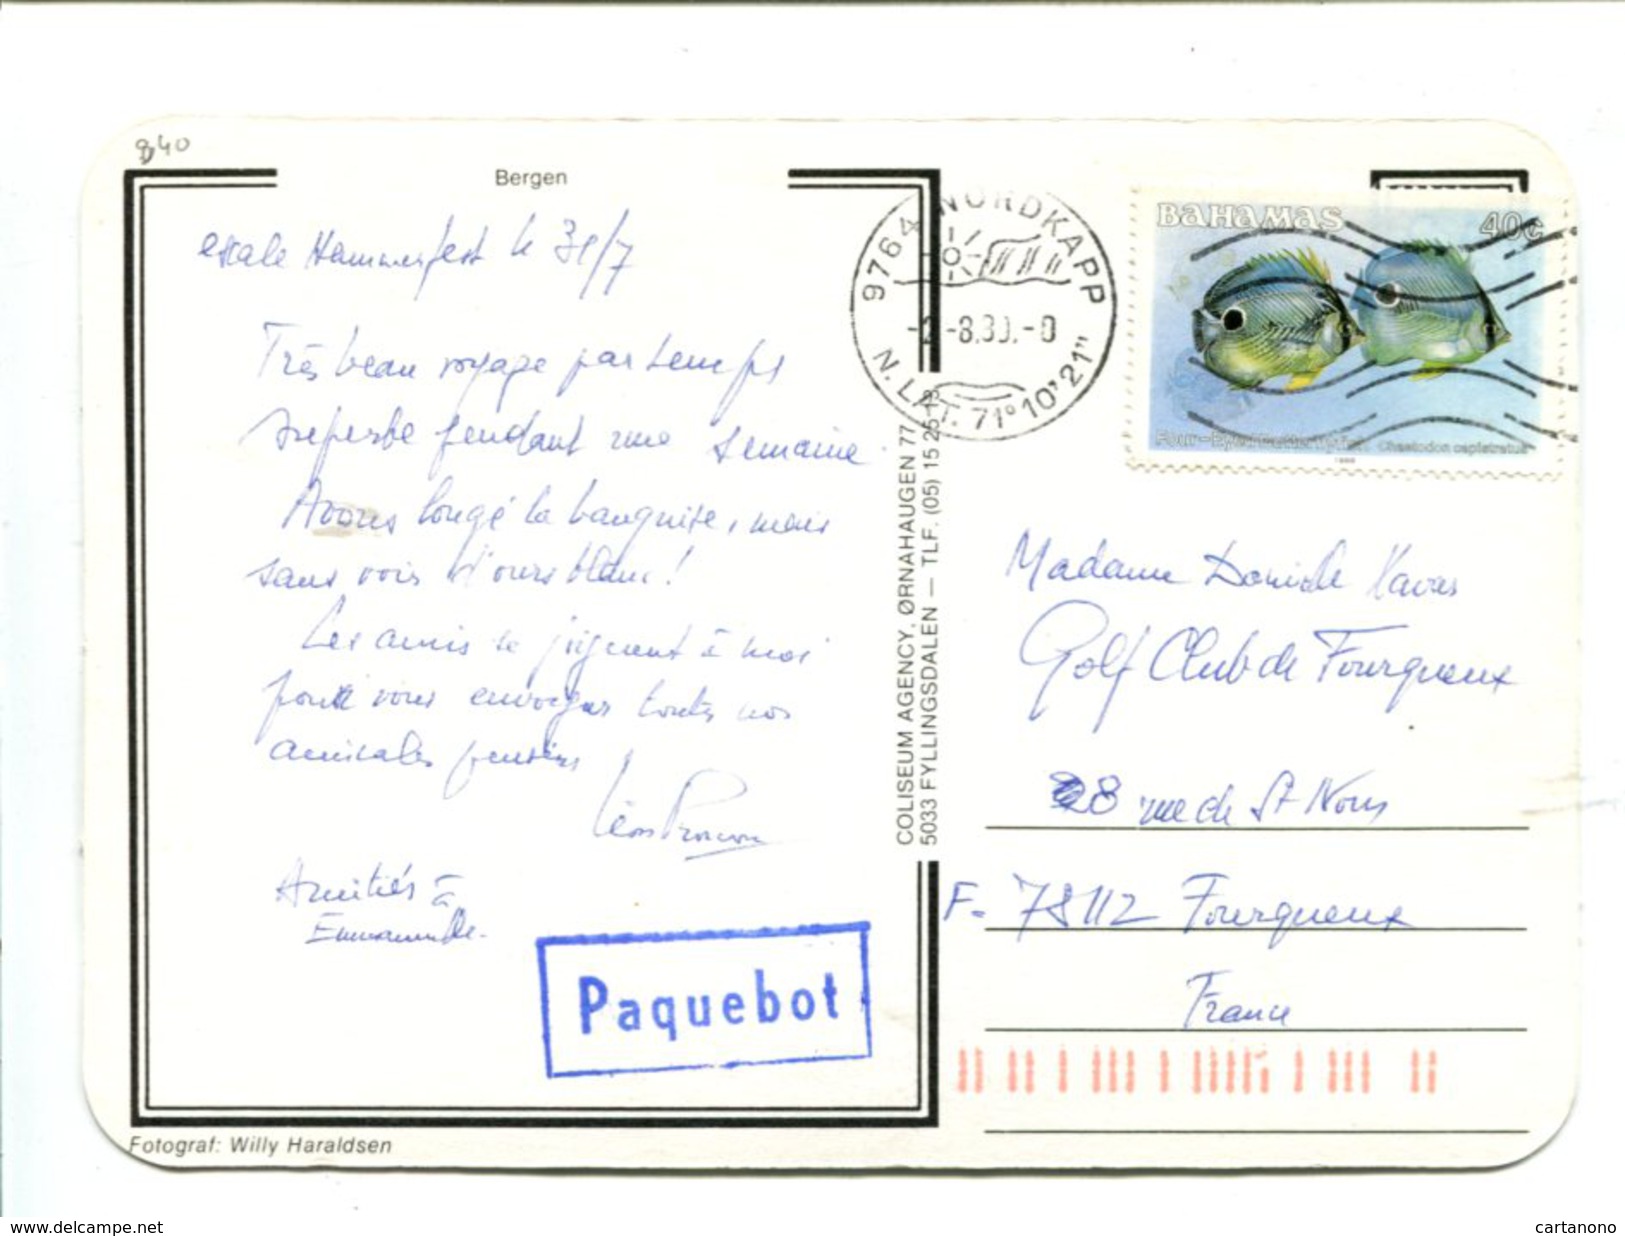 840
Bergen
escale Hammerfest le 31/7
Très beau voyage par temps
superbe pendant une semaine.
Avons longé la banquise, mais
sans voir d'ours blanc!
Les amis se joignent à moi
pour vous envoyer toutes nos
amicales pensées
Léon
Amitiés à
Emmanuelle.
Paquebot
Fotograf: Willy Haraldsen
COLISEUM AGENCY, ØRNAHAUGEN 77
5033 FYLLINGSDALEN — TLF. (05) 15 26
9764 NORDKAPP
-8.90.-0
N. LAT. 71°10'21"
BAHAMAS
40c
Four-Eyed Butterflyfish Chaetodon capistratus
1986
Madame Danielle
Golf Club de Fourqueux
28 rue de St Nom
F- 78112 Fourqueux
France
www.delcampe.net
cartanono